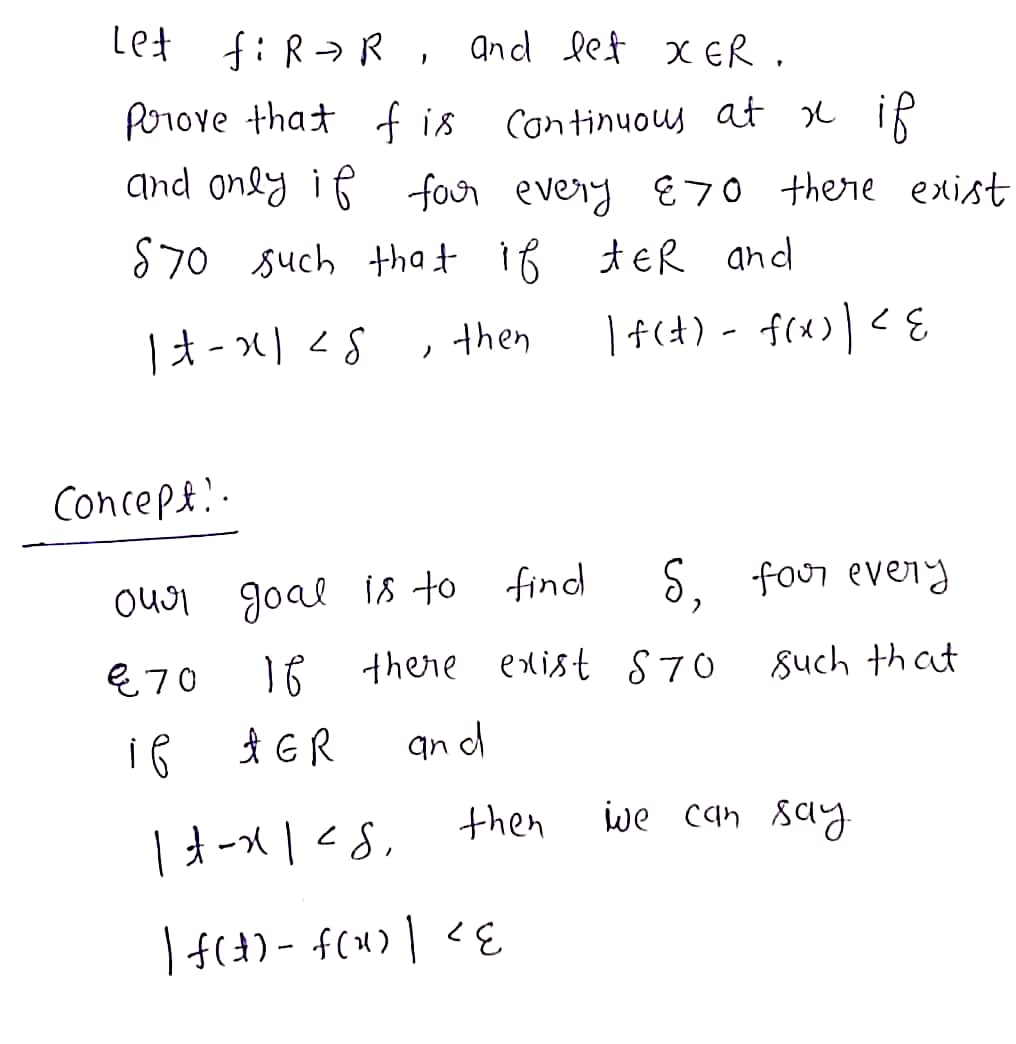 Let f: R → R , and let x ∈ R .
Prove that f is continuous at x if
and only if for every ε > 0 there exist
δ > 0 such that if t ∈ R and
|t - x| < δ , then |f(t) - f(x)| < ε
Concept :
our goal is to find δ, for every
ε > 0 If there exist δ > 0 such that
if t ∈ R and
|t - x| < δ, then we can say
|f(t) - f(x)| < ε